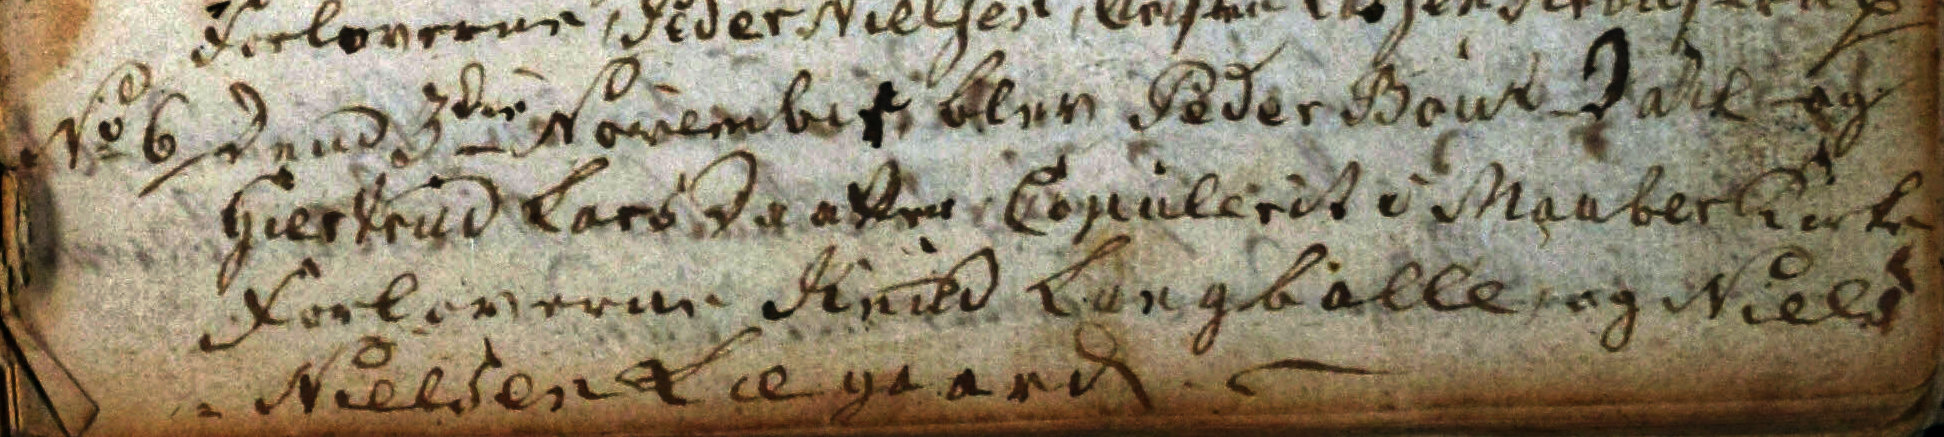 Forloverne, Peder Nielsen,
No 6 Dend 3die November blev Peder Bouk Dahl og
Giertrud Lars Daatter Copulerit i Maaber Kirke
Forloverne Knud Langballe, og Niels
Nielsen Liegaard